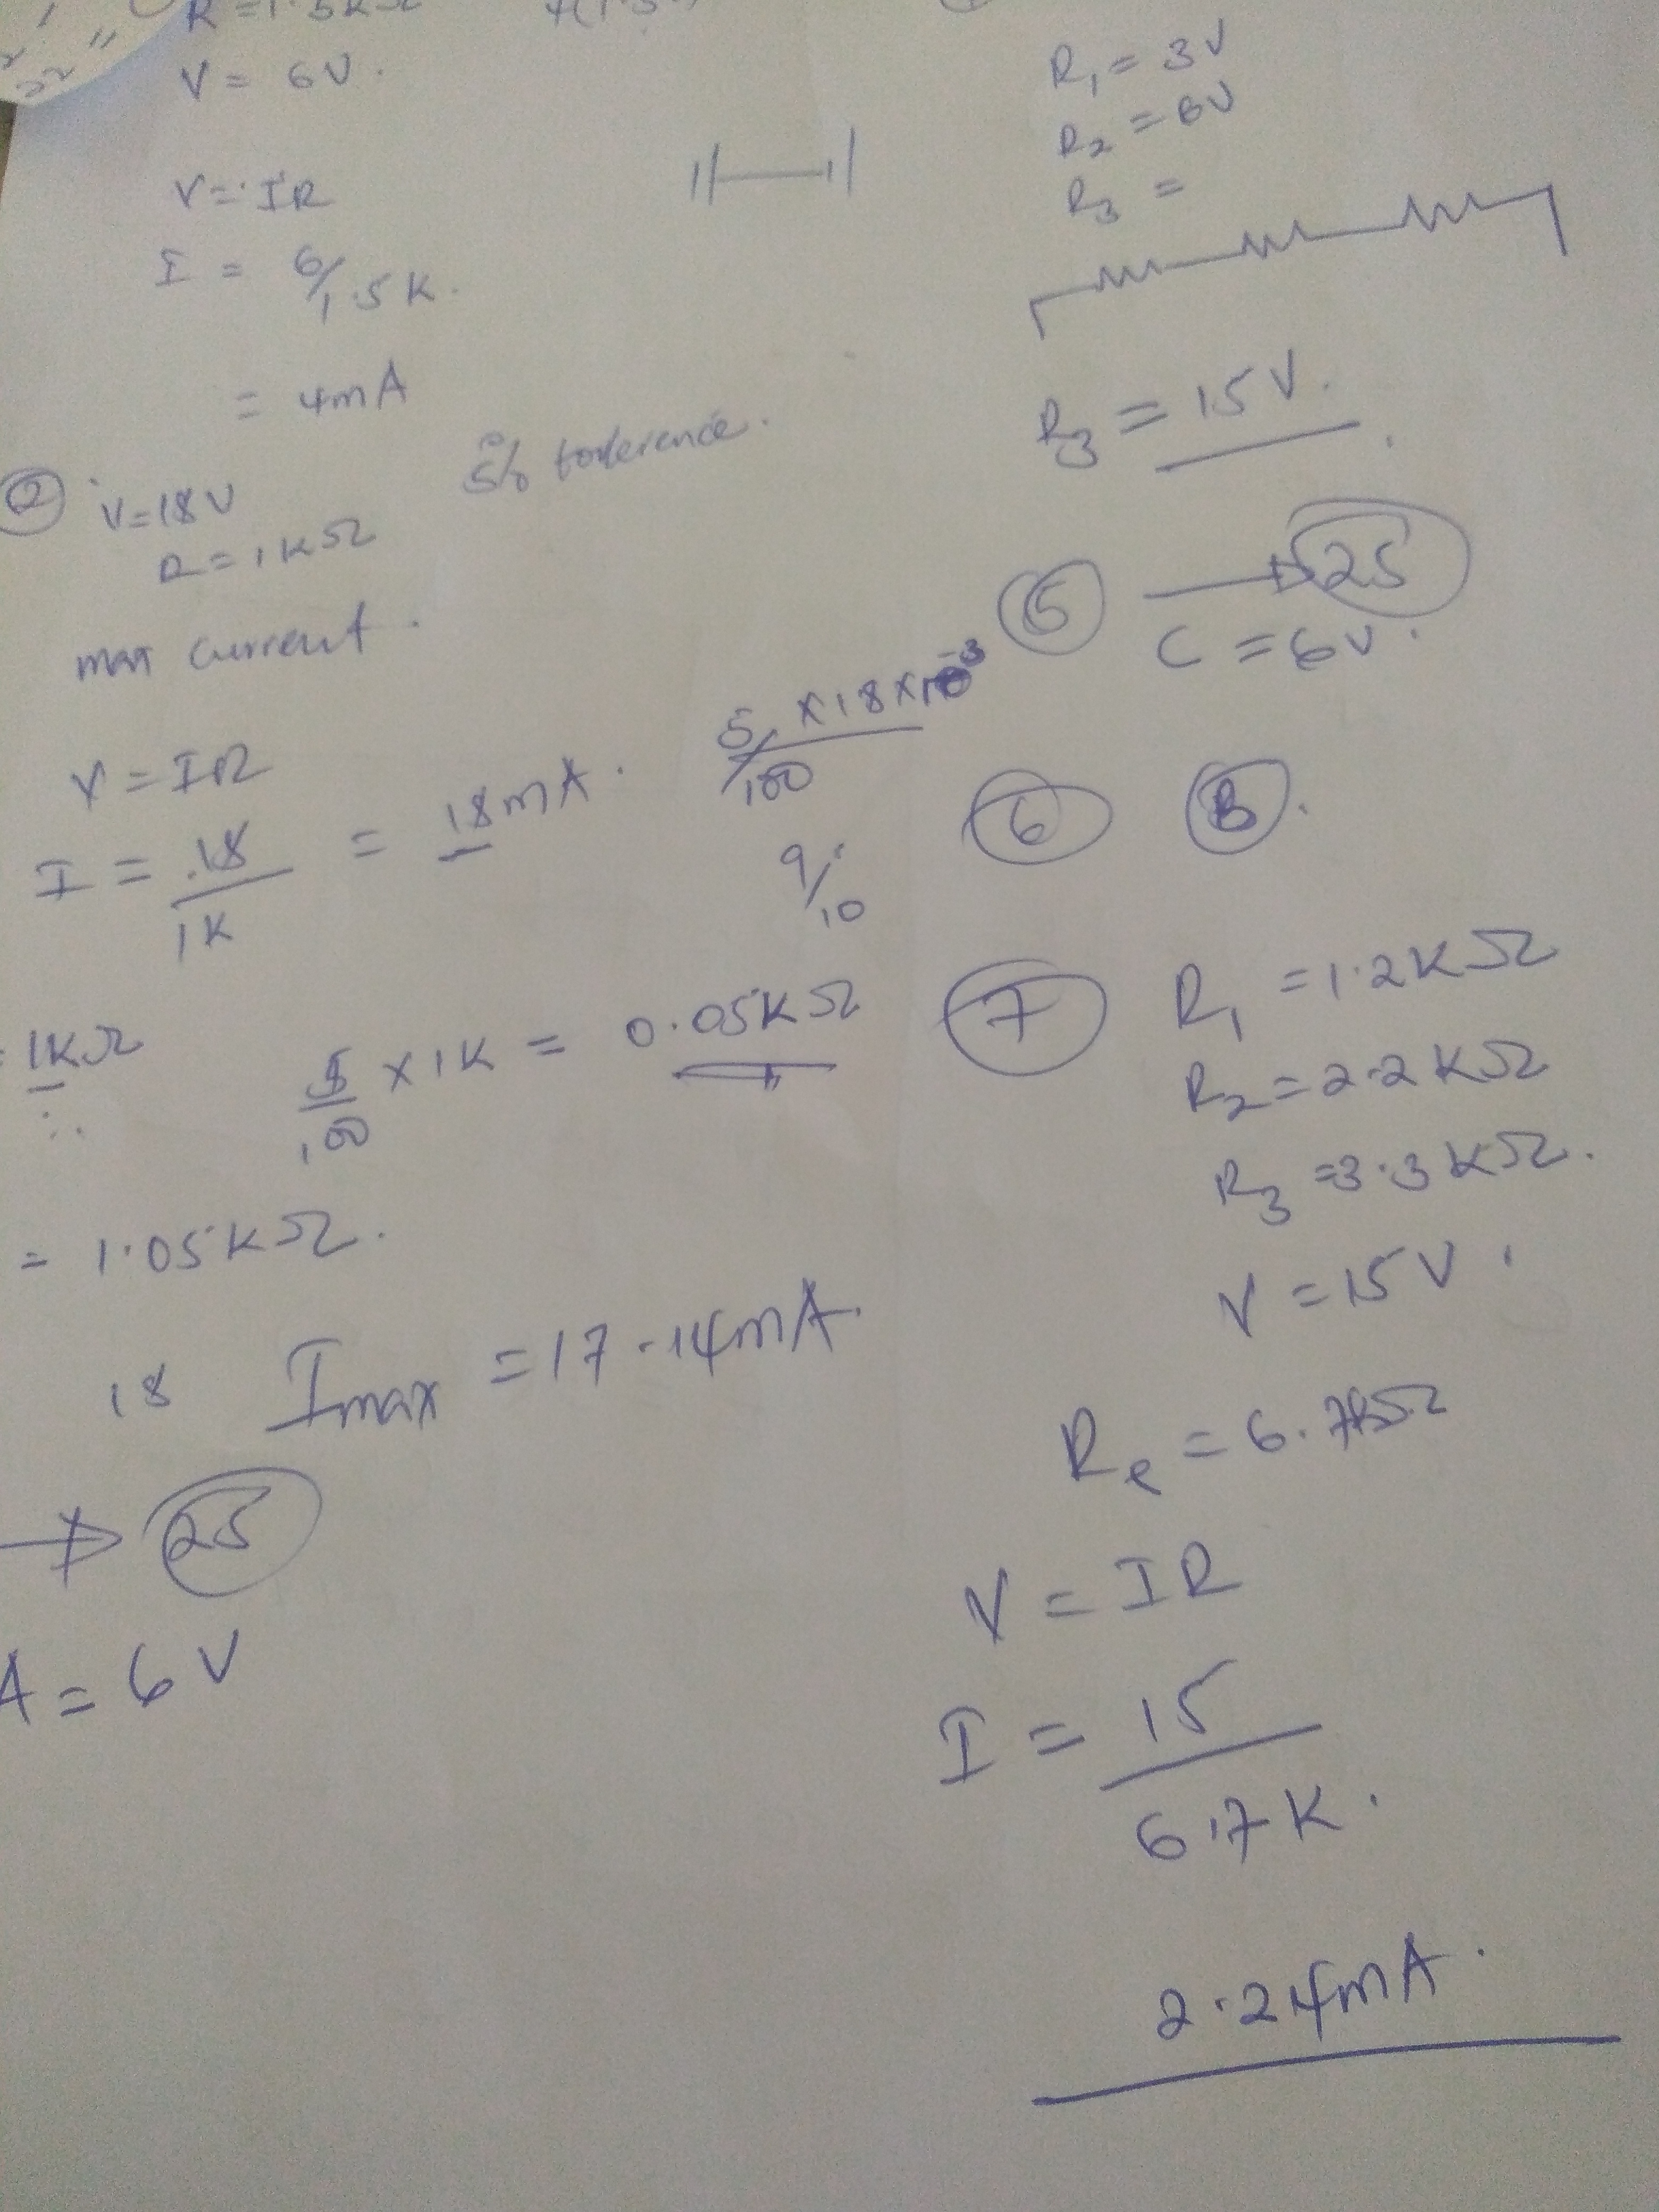 R = 1.5KΩ
V = 6V.
V = IR
I = 6/1.5K.
= 4mA
② V=18V
5% tolerence.
R = 1KΩ
max current.
V = IR
I = 18/1K = 18mA.
5/100 × 18 × 10⁻³
9/10
= 1KΩ
5/100 × 1K = 0.05KΩ
= 1.05KΩ.
18 Imax = 17.14mA.
→ 25
A = 6V
R₁ = 3V
R₂ = 6V
R₃ =
R₃ = 15V.
⑤ → 25
C = 6V.
⑥ B.
⑦ R₁ = 1.2KΩ
R₂ = 2.2KΩ
R₃ = 3.3KΩ.
V = 15V.
Re = 6.7KΩ
V = IR
I = 15/6.7K.
2.24mA.